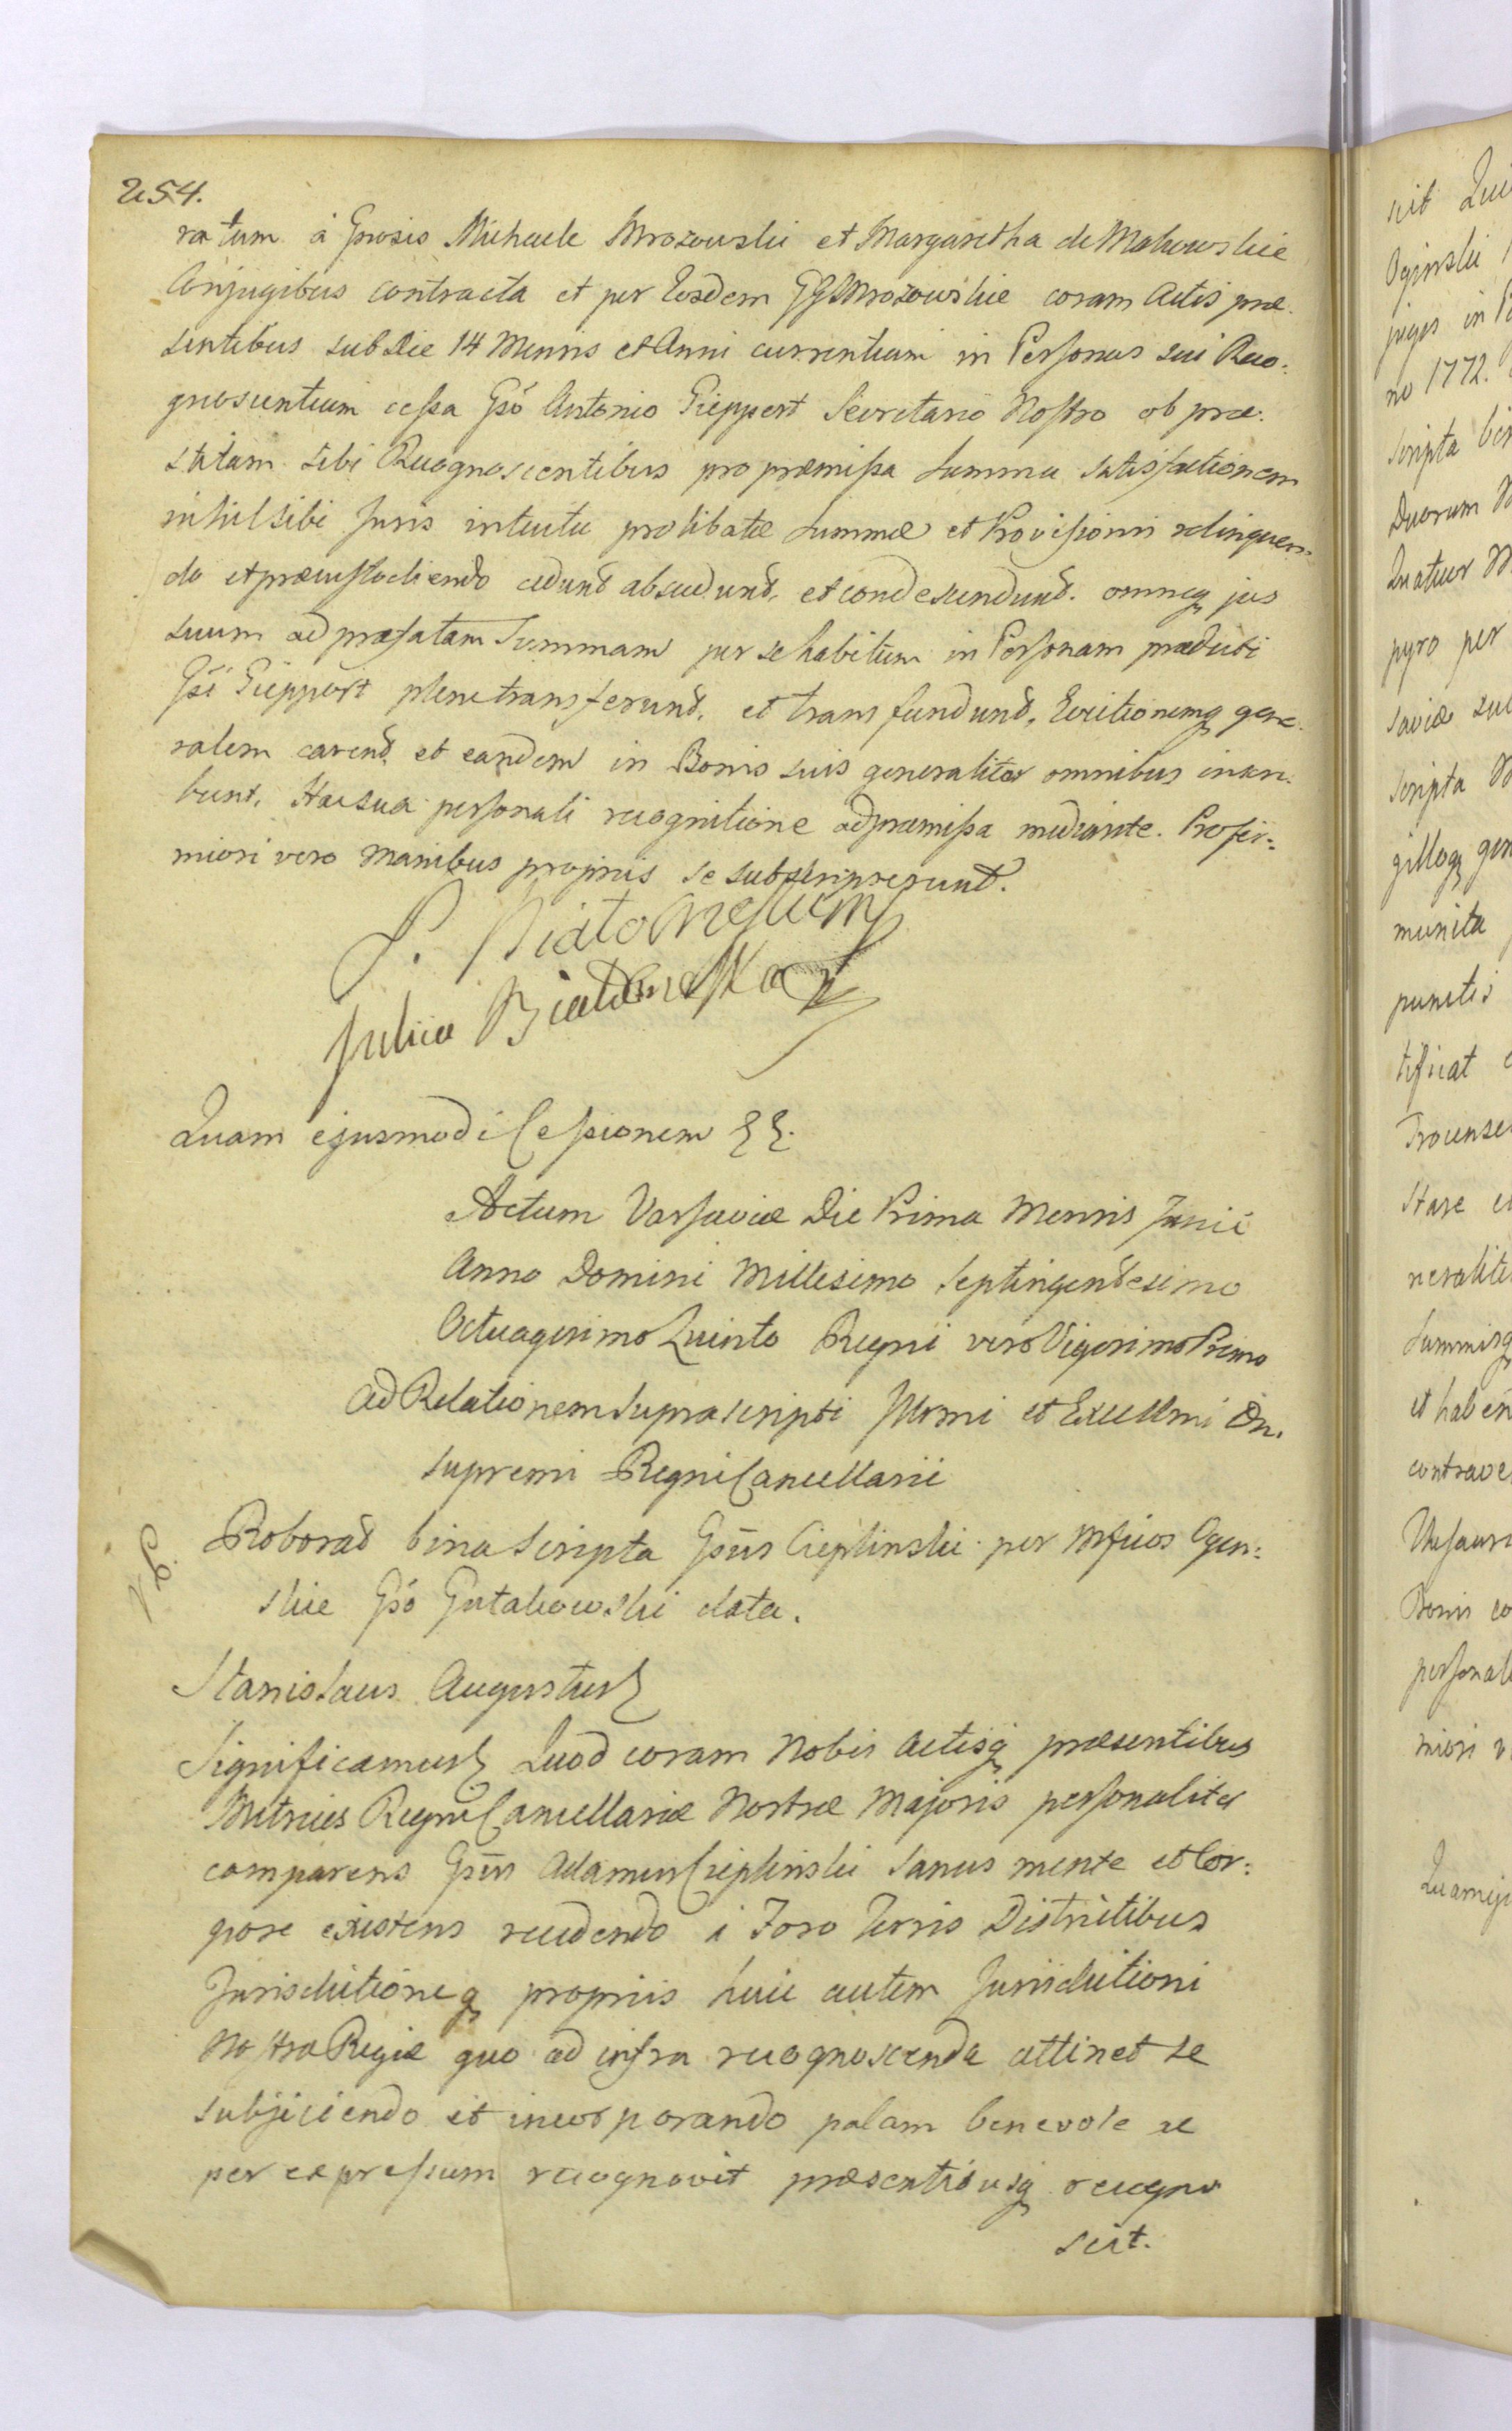 254.
ratum à Gnosis Michaele Mrozowski et Margaretha de Makowskie
Conjugibus contracta et per Eosdem GG Mrozowskie coram Actis præ-
sentibus sub Die 14 Mensis et Anni currentium in Personas sui Reco-
gnoscentium cessa Gsō Antonio Gieppert Secretario Nostro ob præ-
stitam sibi Recognoscentibus pro præmissa Summa satisfactionem
nihil sibi Juris intuitu prolibatæ Summæ et Provisionis relinquen-
do et præcustodiendo cedunt abscedunt, et condescendunt. omneq jus
suum ad præfatam Summam per se habitum in Personam prædicti
Gsī Gieppert plene transferunt, et transfundunt, Evictionemq gene-
ralem cavent et eandem in Bonis suis generaliter omnibus inscri-
bunt. Hac sua personali recognitione ad præmissa mediante. Pro fir-
miori vero Manibus propriis se subscripserunt.
Julia
Quam ejusmodi Cessionem
Actum Varsaviæ Die Prima Mensis Junii
Anno Domini Millesimo Septingentesimo
Octuagesimo Quinto Regni vero Vigesimo Primo
Ad Relationem suprascripti Illmi et Excellmi Dn.
supremi Regni Cancellarii
Roborat bina Scripta Gsūs Cieplinski per Mficos Ogin-
skie Gsō Gutakowski data.
Stanislaus Augustus
Significamus Quod coram Nobis Actisq præsentibus
Metrices Regni Cancellariæ Nostræ Majoris personaliter
comparens Gsūs Adamus Cieplinski sanus mente et Cor-
pore existens recedendo à Foro Terris Districtibus
Jurisdictioneq propriis huic autem Jurisdictioni
Nostra Regiæ quo ad infra recognoscenda attinet se
subjiciendo et incorporando palam benevole ac
per expressum recognovit præsentibusq recogno
scit.
scit
Oginski
no 1772.
scripta
Duorum
Quatuor
pyro per
saviæ
scripta
gilloq
munita
punctis
tificat
Stare
neralite
et haben
contrave
Bonis
personal
miori